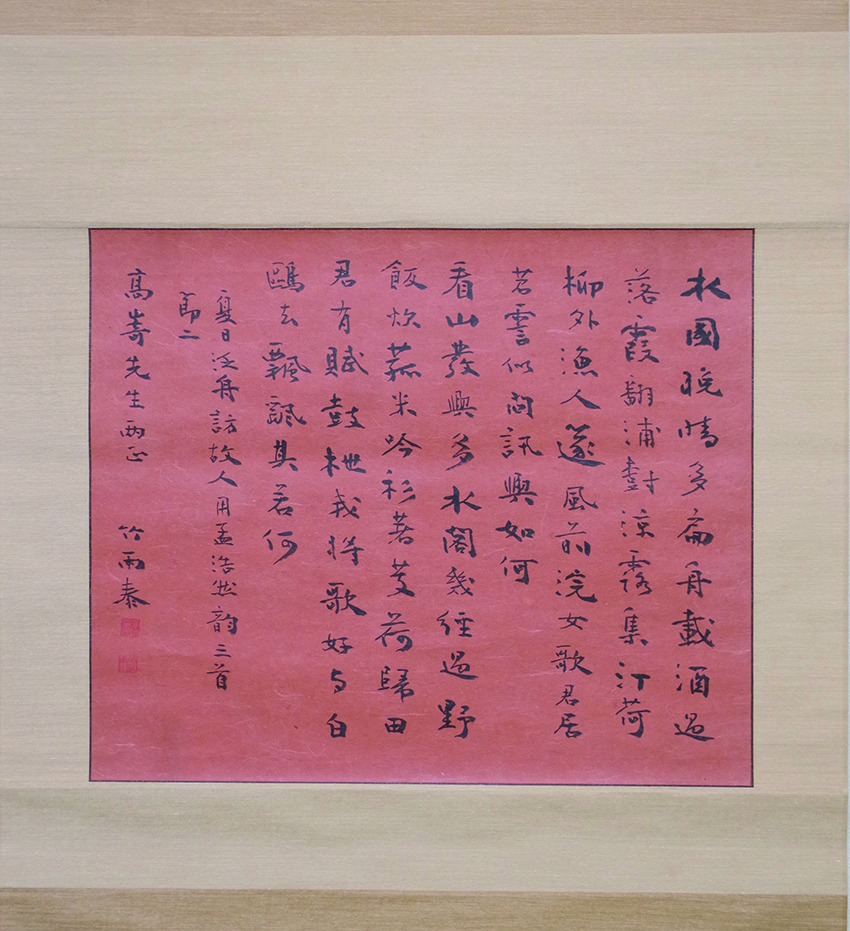 水國晚晴多扁舟載酒過
落霞翻浦樹涼露集汀荷
柳外漁人篴風前浣女歌君居
苕霅似問訊興如何
看山發興多水閣幾經過野
飯炊菰米吟衫著芰荷歸田
君有賦鼓枻我將歌好与白
鷗去飄颻其若何
夏日泛舟訪故人用孟浩然韵三首
節二
高嵜先生兩正 竹雨泰